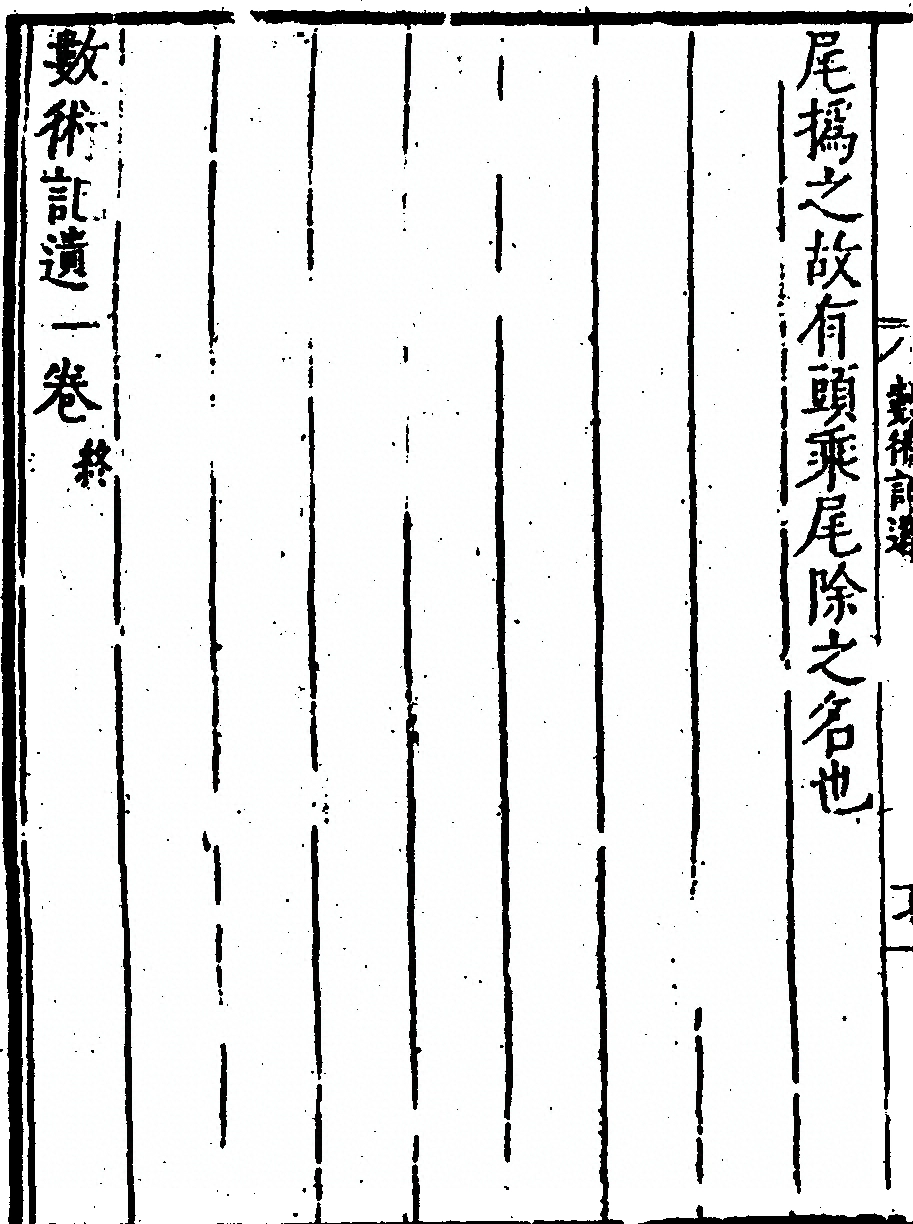 數術記遺
尾撝之故有頭乘尾除之名也
數術記遺一卷終